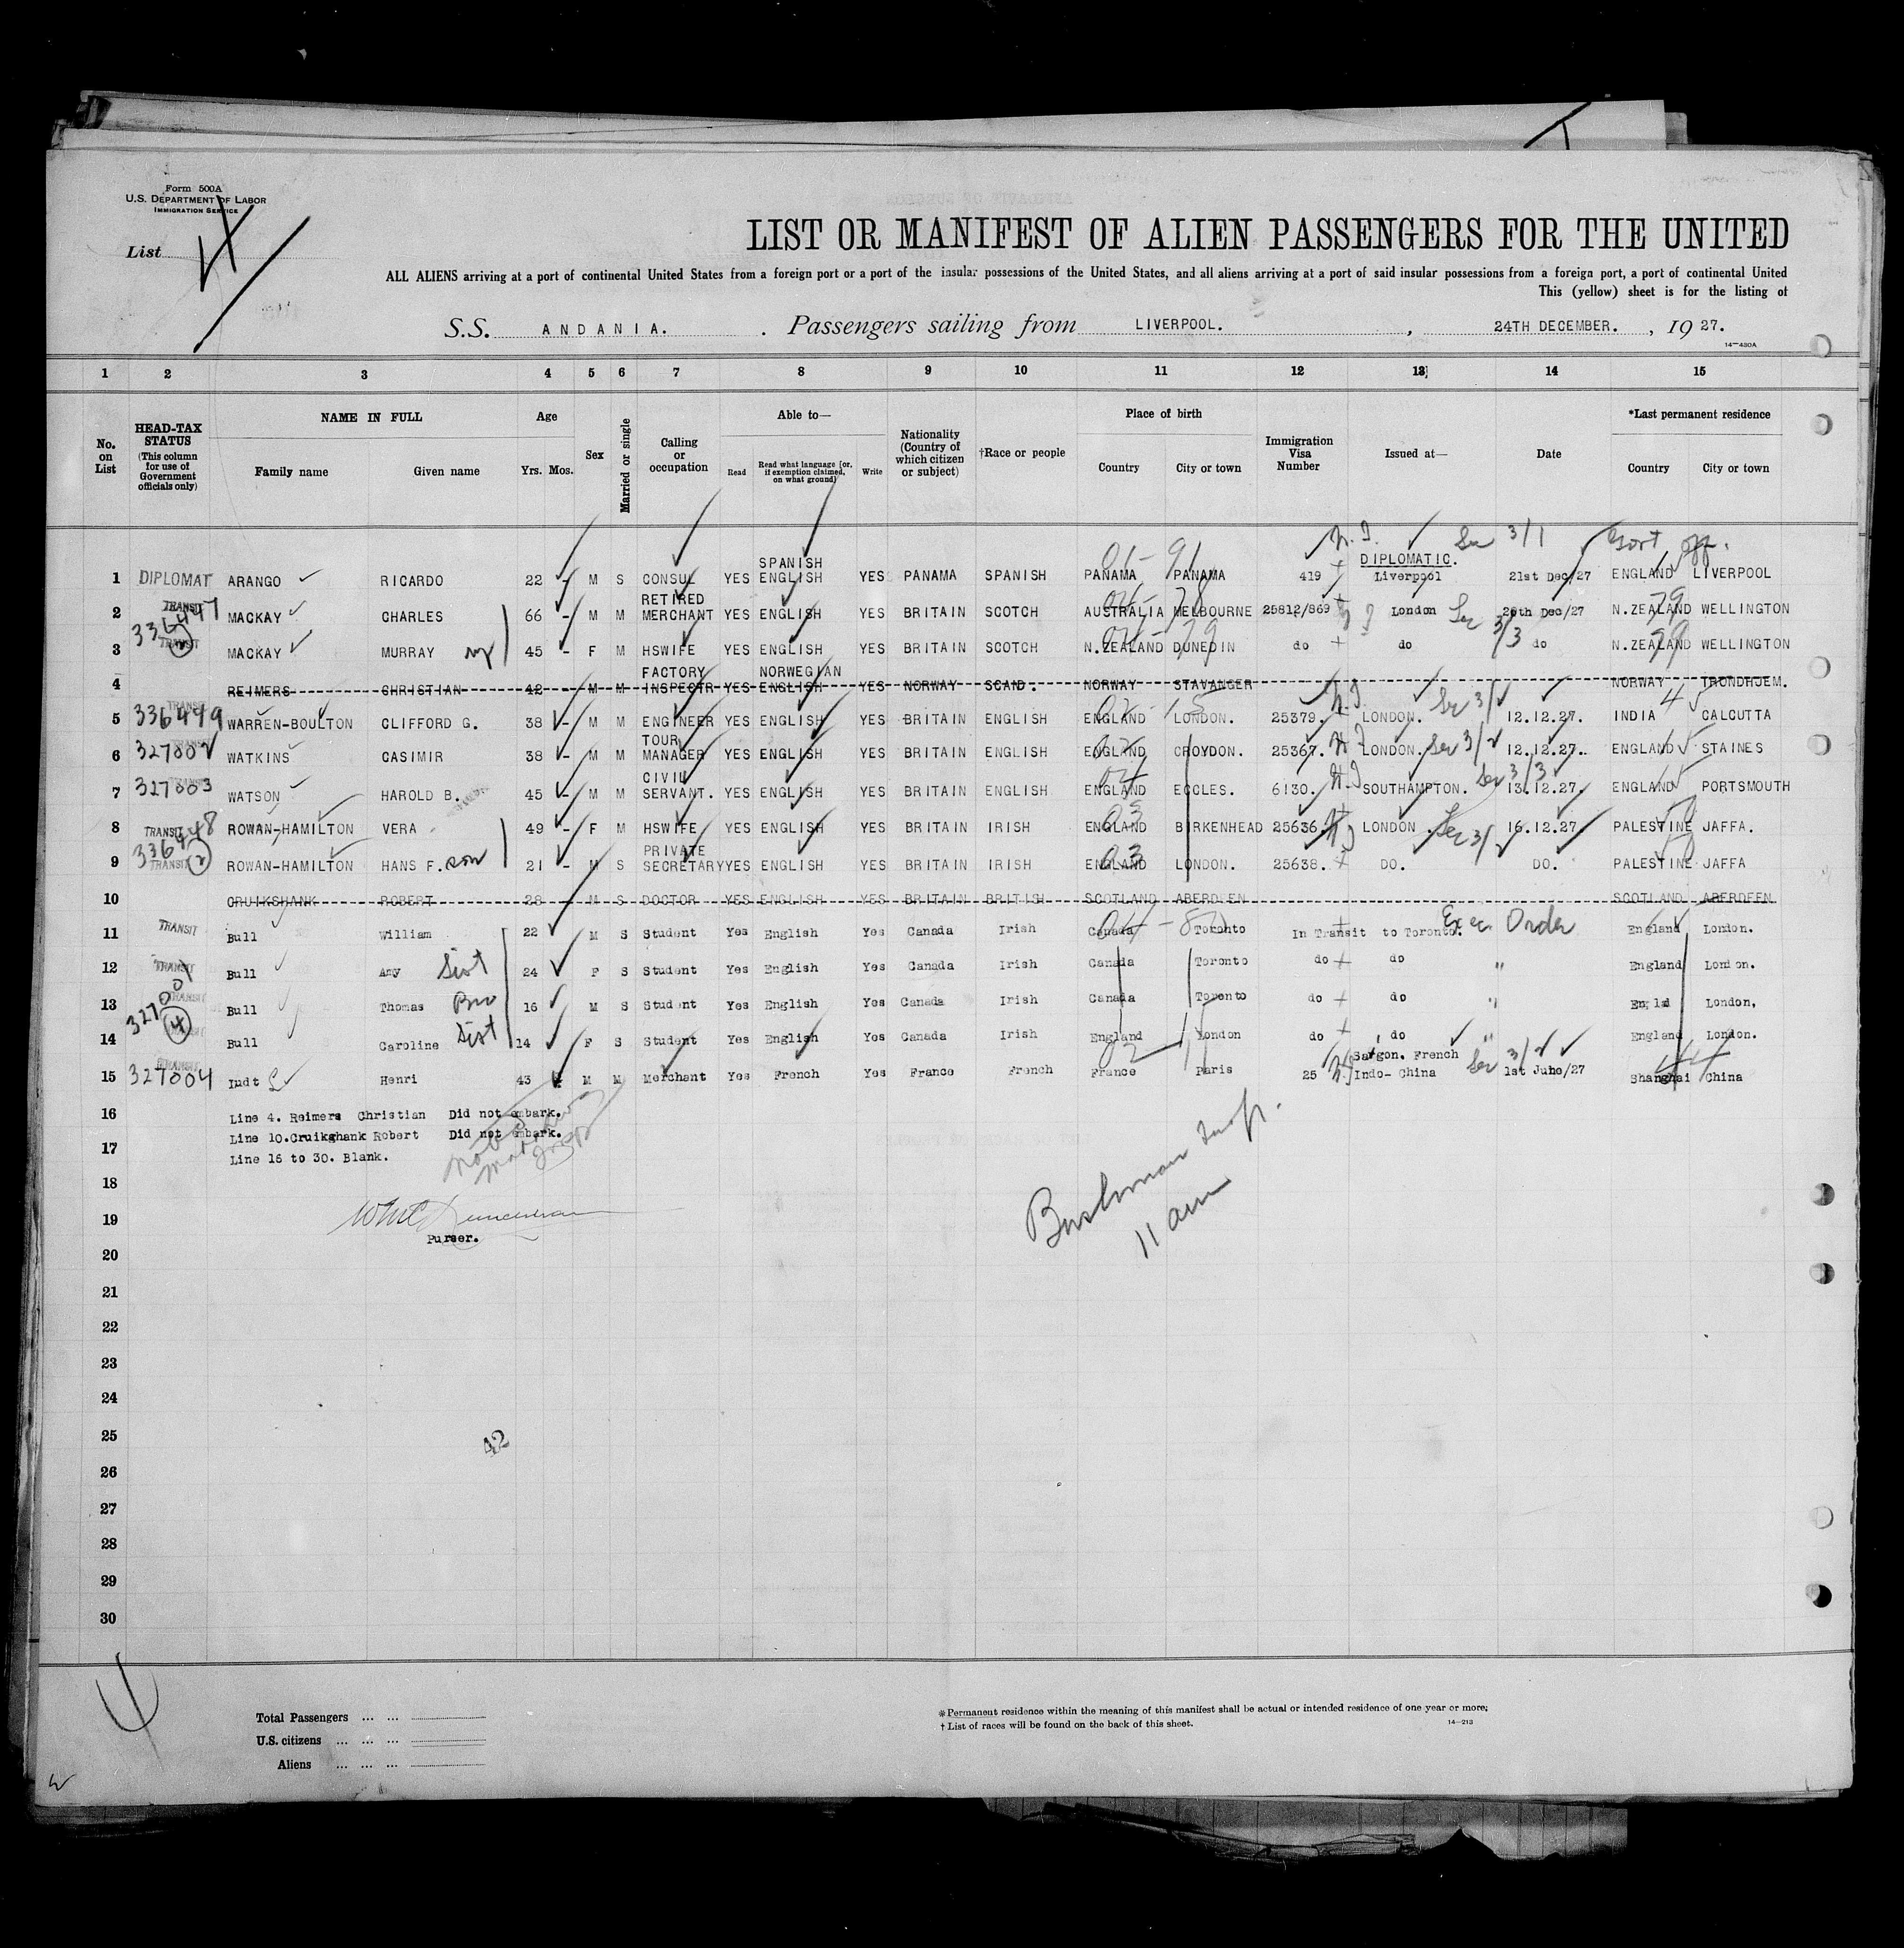 Form 500A
U.S. DEPARTMENT OF LABOR
IMMIGRATION SERVICE
List 4
LIST OR MANIFEST OF ALIEN PASSENGERS FOR THE UNITED
ALL ALIENS arriving at a port of continental United States from a foreign port or a port of the insular possessions of the United States, and all aliens arriving at a port of said insular possessions from a foreign port, a port of continental United
This (yellow) sheet is for the listing of
S.S. ANDANIA. Passengers sailing from LIVERPOOL. , 24TH DECEMBER. , 19 27.
14-430A
1 2 3 4 5 6 7 8 9 10 11 12 13 14 15
No. on List
HEAD-TAX STATUS (This column for use of Government officials only)
NAME IN FULL Family name Given name
Age Yrs. Mos.
Sex
Married or single
Calling or occupation
Able to— Read Read what language [or, if exemption claimed, on what ground] Write
Nationality (Country of which citizen or subject)
†Race or people
Place of birth Country City or town
Immigration Visa Number
Issued at—
Date
*Last permanent residence Country City or town
N.I. Sec 3/1 Govt off.
1 DIPLOMAT ARANGO RICARDO 22 - M S CONSUL YES SPANISH ENGLISH YES PANAMA SPANISH PANAMA PANAMA 419 DIPLOMATIC. Liverpool 21st Dec/27 ENGLAND LIVERPOOL
2 TRANSIT 336447 MACKAY CHARLES 66 - M M RETIRED MERCHANT YES ENGLISH YES BRITAIN SCOTCH AUSTRALIA MELBOURNE 25812/869 London 20th Dec/27 N.ZEALAND WELLINGTON
3 TRANSIT MACKAY MURRAY 45 - F M HSWIFE YES ENGLISH YES BRITAIN SCOTCH N.ZEALAND DUNEDIN do do do N.ZEALAND WELLINGTON
4 REIMERS CHRISTIAN 42 - M M FACTORY INSPECTR YES NORWEGIAN ENGLISH YES NORWAY SCAND. NORWAY STAVANGER NORWAY TRONDHJEM.
5 TRANSIT 336449 WARREN-BOULTON CLIFFORD G. 38 - M M ENGINEER YES ENGLISH YES BRITAIN ENGLISH ENGLAND LONDON. 25379. LONDON. 12.12.27. INDIA CALCUTTA
6 TRANSIT 327002 WATKINS CASIMIR 38 - M M TOUR MANAGER YES ENGLISH YES BRITAIN ENGLISH ENGLAND CROYDON. 25367. LONDON. 12.12.27. ENGLAND STAINES
7 TRANSIT 327003 WATSON HAROLD B. 45 - M M CIVIL SERVANT. YES ENGLISH YES BRITAIN ENGLISH ENGLAND ECCLES. 6130. SOUTHAMPTON. 13.12.27. ENGLAND PORTSMOUTH
8 TRANSIT 336448 ROWAN-HAMILTON VERA 49 - F M HSWIFE YES ENGLISH YES BRITAIN IRISH ENGLAND BIRKENHEAD 25636. LONDON 16.12.27 PALESTINE JAFFA.
9 TRANSIT 2 ROWAN-HAMILTON HANS F. son 21 - M S PRIVATE SECRETARY YES ENGLISH YES BRITAIN IRISH ENGLAND LONDON. 25638. DO. DO. PALESTINE JAFFA
10 CRUIKSHANK ROBERT 28 - M S DOCTOR YES ENGLISH YES BRITAIN BRITISH SCOTLAND ABERDEEN SCOTLAND ABERDEEN
11 TRANSIT Bull William 22 M S Student Yes English Yes Canada Irish Canada Toronto In Transit to Toronto. Exec. Order England London.
12 TRANSIT Bull Amy Sist 24 F S Student Yes English Yes Canada Irish Canada Toronto do do " England London.
13 TRANSIT 327001 Bull Thomas Bro 16 M S Student Yes English Yes Canada Irish Canada Toronto do do " Englad London,
14 4 Bull Caroline Sist 14 F S Student Yes English Yes Canada Irish England London do do " England London.
15 TRANSIT 327004 Iudt Henri 43 M M Merchant Yes French Yes France French France Paris 25 Saigon. French Indo- China 1st June/27 Shanghai China
16 Line 4. Reimers Christian Did not embark.
Line 10.Cruikghank Robert Did not embark.
17 Line 16 to 30. Blank.
18
19
Purser.
20
11 am
21
22
23
24
25
42
26
27
28
29
30
Total Passengers ... ...
U.S. citizens ... ... ...
Aliens ... ... ...
*Permanent residence within the meaning of this manifest shall be actual or intended residence of one year or more.
† List of races will be found on the back of this sheet. 14-213